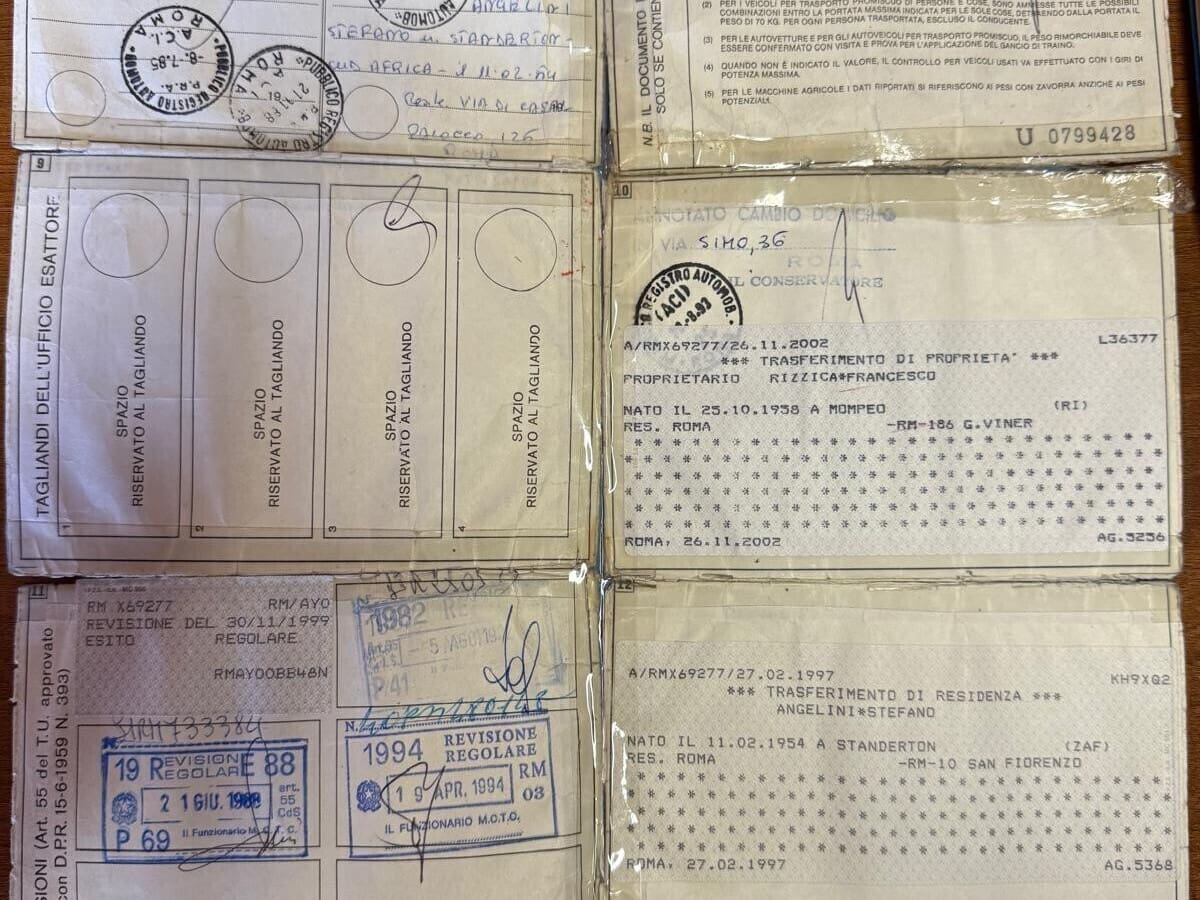 ANGELINI
STEFANO n. STANDERTON -
SUD AFRICA - il 11.02.54
VIA DI CASAL
PALOCCO 126
ROMA
PUBBLICO REGISTRO AUTOMOB
ROMA
A.C.I.
-8.7.85
P.R.A.
PUBBLICO REGISTRO AUTOMOB
ROMA
N.B. IL DOCUMENTO
SOLO SE CONTIEN
(2) PER I VEICOLI PER TRASPORTO PROMISCUO DI PERSONE E COSE, SONO AMMESSE TUTTE LE POSSIBILI
COMBINAZIONI ENTRO LA PORTATA MASSIMA INDICATA PER LE SOLE COSE, DETRAENDO DALLA PORTATA IL
PESO DI 70 KG. PER OGNI PERSONA TRASPORTATA, ESCLUSO IL CONDUCENTE.
(3) PER LE AUTOVETTURE E PER GLI AUTOVEICOLI PER TRASPORTO PROMISCUO, IL PESO RIMORCHIABILE DEVE
ESSERE CONFERMATO CON VISITA E PROVA PER L'APPLICAZIONE DEL GANCIO DI TRAINO.
(4) QUANDO NON È INDICATO IL VALORE, IL CONTROLLO PER VEICOLI USATI VA EFFETTUATO CON I GIRI DI
POTENZA MASSIMA.
(5) PER LE MACCHINE AGRICOLE I DATI RIPORTATI SI RIFERISCONO AI PESI CON ZAVORRA ANZICHÈ AI PESI
POTENZIALI.
U 0799428
9
TAGLIANDI DELL'UFFICIO ESATTORE
1
SPAZIO
RISERVATO AL TAGLIANDO
2
SPAZIO
RISERVATO AL TAGLIANDO
3
SPAZIO
RISERVATO AL TAGLIANDO
4
SPAZIO
RISERVATO AL TAGLIANDO
10
ANNOTATO CAMBIO DOMICILIO
VIA SIMO, 36
ROMA
IL CONSERVATORE
REGISTRO AUTOMOB.
(ACI)
-8.93
A/RMX69277/26.11.2002 L36377
*** TRASFERIMENTO DI PROPRIETA' ***
PROPRIETARIO RIZZICA*FRANCESCO
NATO IL 25.10.1958 A MOMPEO (RI)
RES. ROMA -RM-186 G.VINER
ROMA, 26.11.2002 AG.5256
11
SIONI (Art. 55 del T.U. approvato
con D.P.R. 15-6-1959 N. 393)
RM X69277 RM/AYO
REVISIONE DEL 30/11/1999
ESITO REGOLARE
RMAYOOBB48N
1982 RE
P 41
19 REVISIONE REGOLARE 88
21 GIU. 1988
art. 55 CdS
P 69 Il Funzionario M.C.T.C.
N.
1994 REVISIONE
REGOLARE
19 APR. 1994
RM
03
IL FUNZIONARIO M.O.T.O.
12
A/RMX69277/27.02.1997 KH9XQ2
*** TRASFERIMENTO DI RESIDENZA ***
ANGELINI*STEFANO
NATO IL 11.02.1954 A STANDERTON (ZAF)
RES. ROMA -RM-10 SAN FIORENZO
ROMA, 27.02.1997 AG.5368